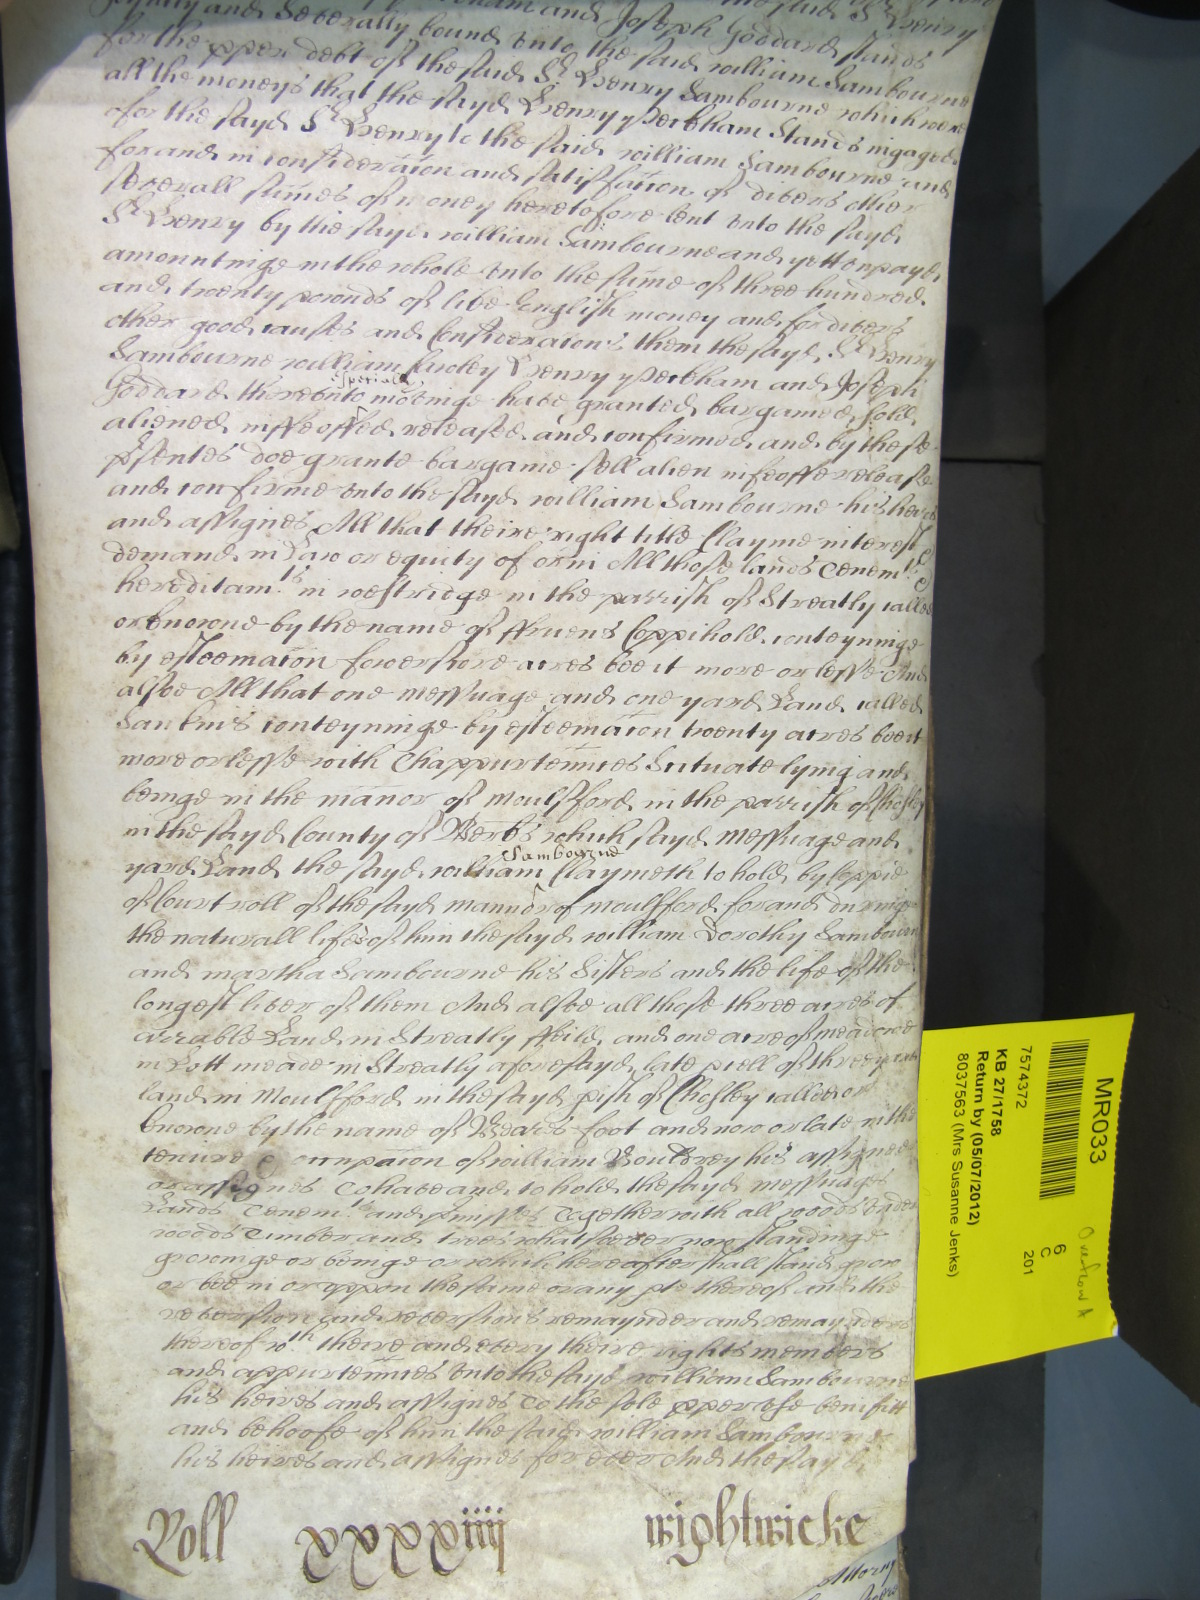 Joyntly and Severally bound unto the said william Sambourne
for the pper debt of the said Sr Henry Sambourne which were
all the moneys that the sayd Henry Peckham Stands ingaged
for the sayd Sr Henry to the said william Sambourne and
for and in consideracion and satisfaccion of divers other
severall summes of money heretofore lent unto the sayd
Sr Henry by the sayd william Sambourne and yett unpayd
amountinge in the whole unto the summe of three hundred
and twenty pounds of like English money and for divers
other good causes and Consideracions them the sayd Sr Henry
Sambourne william Henry Peckham and Joseph
Goddard thereunto specially movinge have granted bargained sold
aliened infeoffed released and confirmed and by these
psentes doe grante bargaine sell alien infeoffe release
and confirme unto the sayd william Sambourne his heires
and assignes All that theire right title Clayme interest
demand in Law or equity of or in All those lands tenemts
hereditamts in westridge in the parrish of Streatly called
or knowne by the name of ffruens Coppihold conteyninge
by esteemacion fowerskore acres bee it more or lesse And
alsoe All that one messuage and one yard Land called
Sankins conteyninge by esteemacion twenty acres bee it
more or lesse with thappurtennces Scituate lying and
beinge in the mannor of Moulsford in the parrish of Cholsey
in the sayd County of Berks which sayd messuage and
yard Land the sayd william Sambourne Claymeth to hold by Coppie
of Court roll of the sayd mannor of moulsford for and duringe
the naturall lifes of him the sayd william Dorothy Sambourne
and martha Sambourne his Sisters and the life of the
longest liver of them And alsoe all those three acres of
arrable Land in Streatly ffeild and one acre of meadowe
in Lott meade in Streatly aforesayd late pcell of three yard
land in Moulsford in the sayd pish of Cholsey called or
knowne by the name of Beards foot and now or late in the
tenure & occupacion of william Bouldrey his assignee
or assignes To have and to hold the sayd messuages
Lands Tenemts and pmisses Together with all woods under
woods Timber and trees whatsoever now standinge
growinge or beinge or which hereafter shall stand grow
or bee in or uppon the same or any pte thereof and the
reversion and reversions remaynder and remaynders
thereof wth theire and every theire rights members
and appurtennces unto the sayd william Sambourne
his heires and assignes To the sole pper use benifitt
and behoofe of him the said william Sambourne
his heires and assignes for ever And the sayd
Roll xxxxiiij wightwicke
Attorny
MR033
7574372
KB 27/1758
Return by (05/07/2012)
8037563 (Mrs Susanne Jenks)
6
C
201
Overflow A